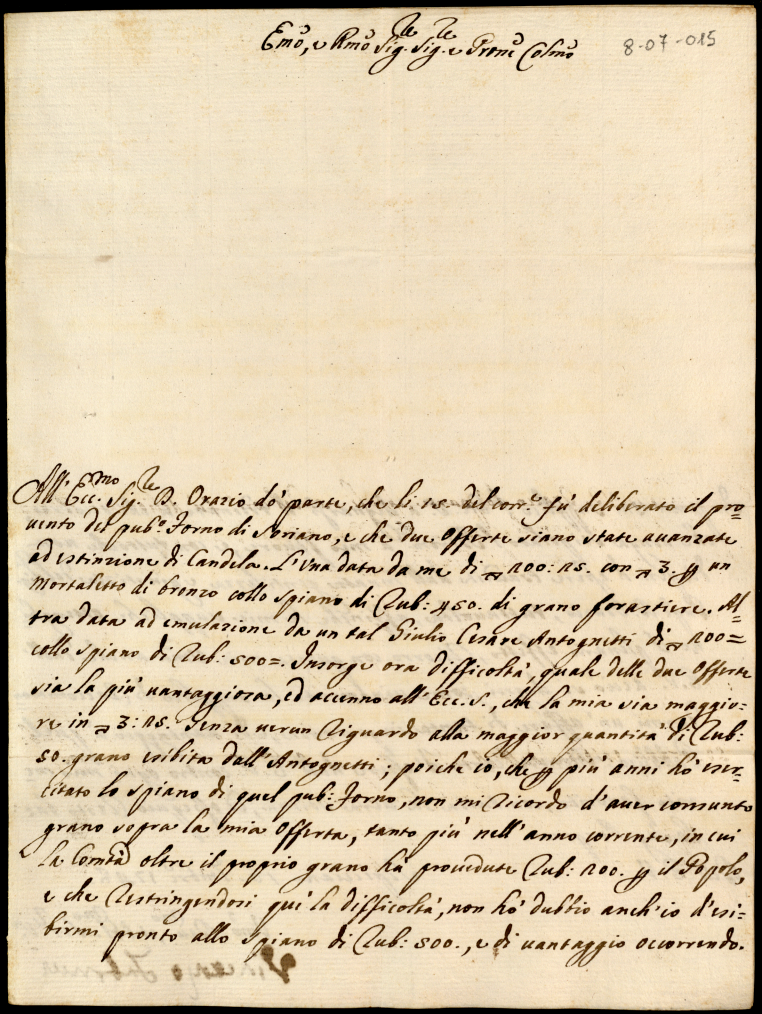 Emo, e Rmo Sig.re Sig.re e Prone Colmo
8-07-015
All' Ecc.mo Sig.re D. Orazio dò parte, che li 15. del corr.e fù deliberato il pro=
uento del pub.o Forno di Soriano, e che due offerte siano state auanzate
ad estinzione di Candela. L'Una data da me di 100: 15. con 3. p un
mortaletto di bronzo collo spiano di Rub: 450. di grano forastiere. Al=
tra data ad emulazione da un tal Giulio Cesare Antognetti di 100=
collo spiano di Rub: 500=. Insorge ora difficoltà, quale delle due offerte
sia la più uantaggiosa, ed accenno all'Ecc. S., che la mia sia maggio=
re in 3: 15. Senza uerun riguardo alla maggior quantità di Rub:
50. grano esibita dall'Antognetti; poiche io, che p più anni hò eser=
citato lo spiano di quel pub: Forno, non mi ricordo d'auer consunto
grano sopra la mia offerta, tanto più nell'anno corrente, in cui
la Comtà oltre il proprio grano hà prouedute Rub: 100. p il Popolo,
e che restringendosi quì la difficoltà, non hò dubbio anch'io d'esi=
birmi pronto allo spiano di Rub: 500., e di uantaggio occorrendo.